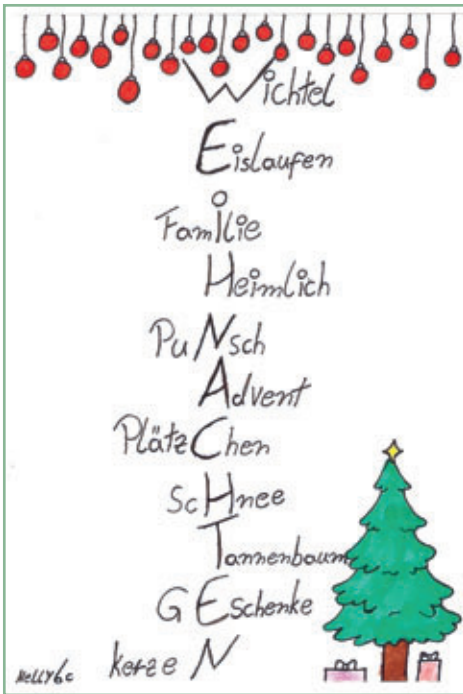 Wichtel
Eislaufen
FamIlie
Heimlich
PuNsch
Advent
PlätzChen
ScHnee
Tannenbaum
GEschenke
kerzeN
Nelly 6c